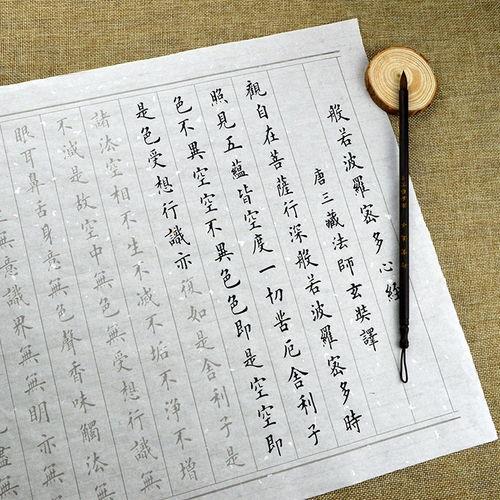 般若波羅密多心經
唐三藏法師玄奘譯
觀自在菩薩行深般若波羅密多時
照見五蘊皆空度一切苦厄舍利子
色不異空空不異色色即是空空即
是色受想行識亦復如是舍利子是
諸法空相不生不滅不垢不淨不增
不減是故空中無色無受想行識無
眼耳鼻舌身意無色聲香味觸法無
無意識界無無明亦無
盡